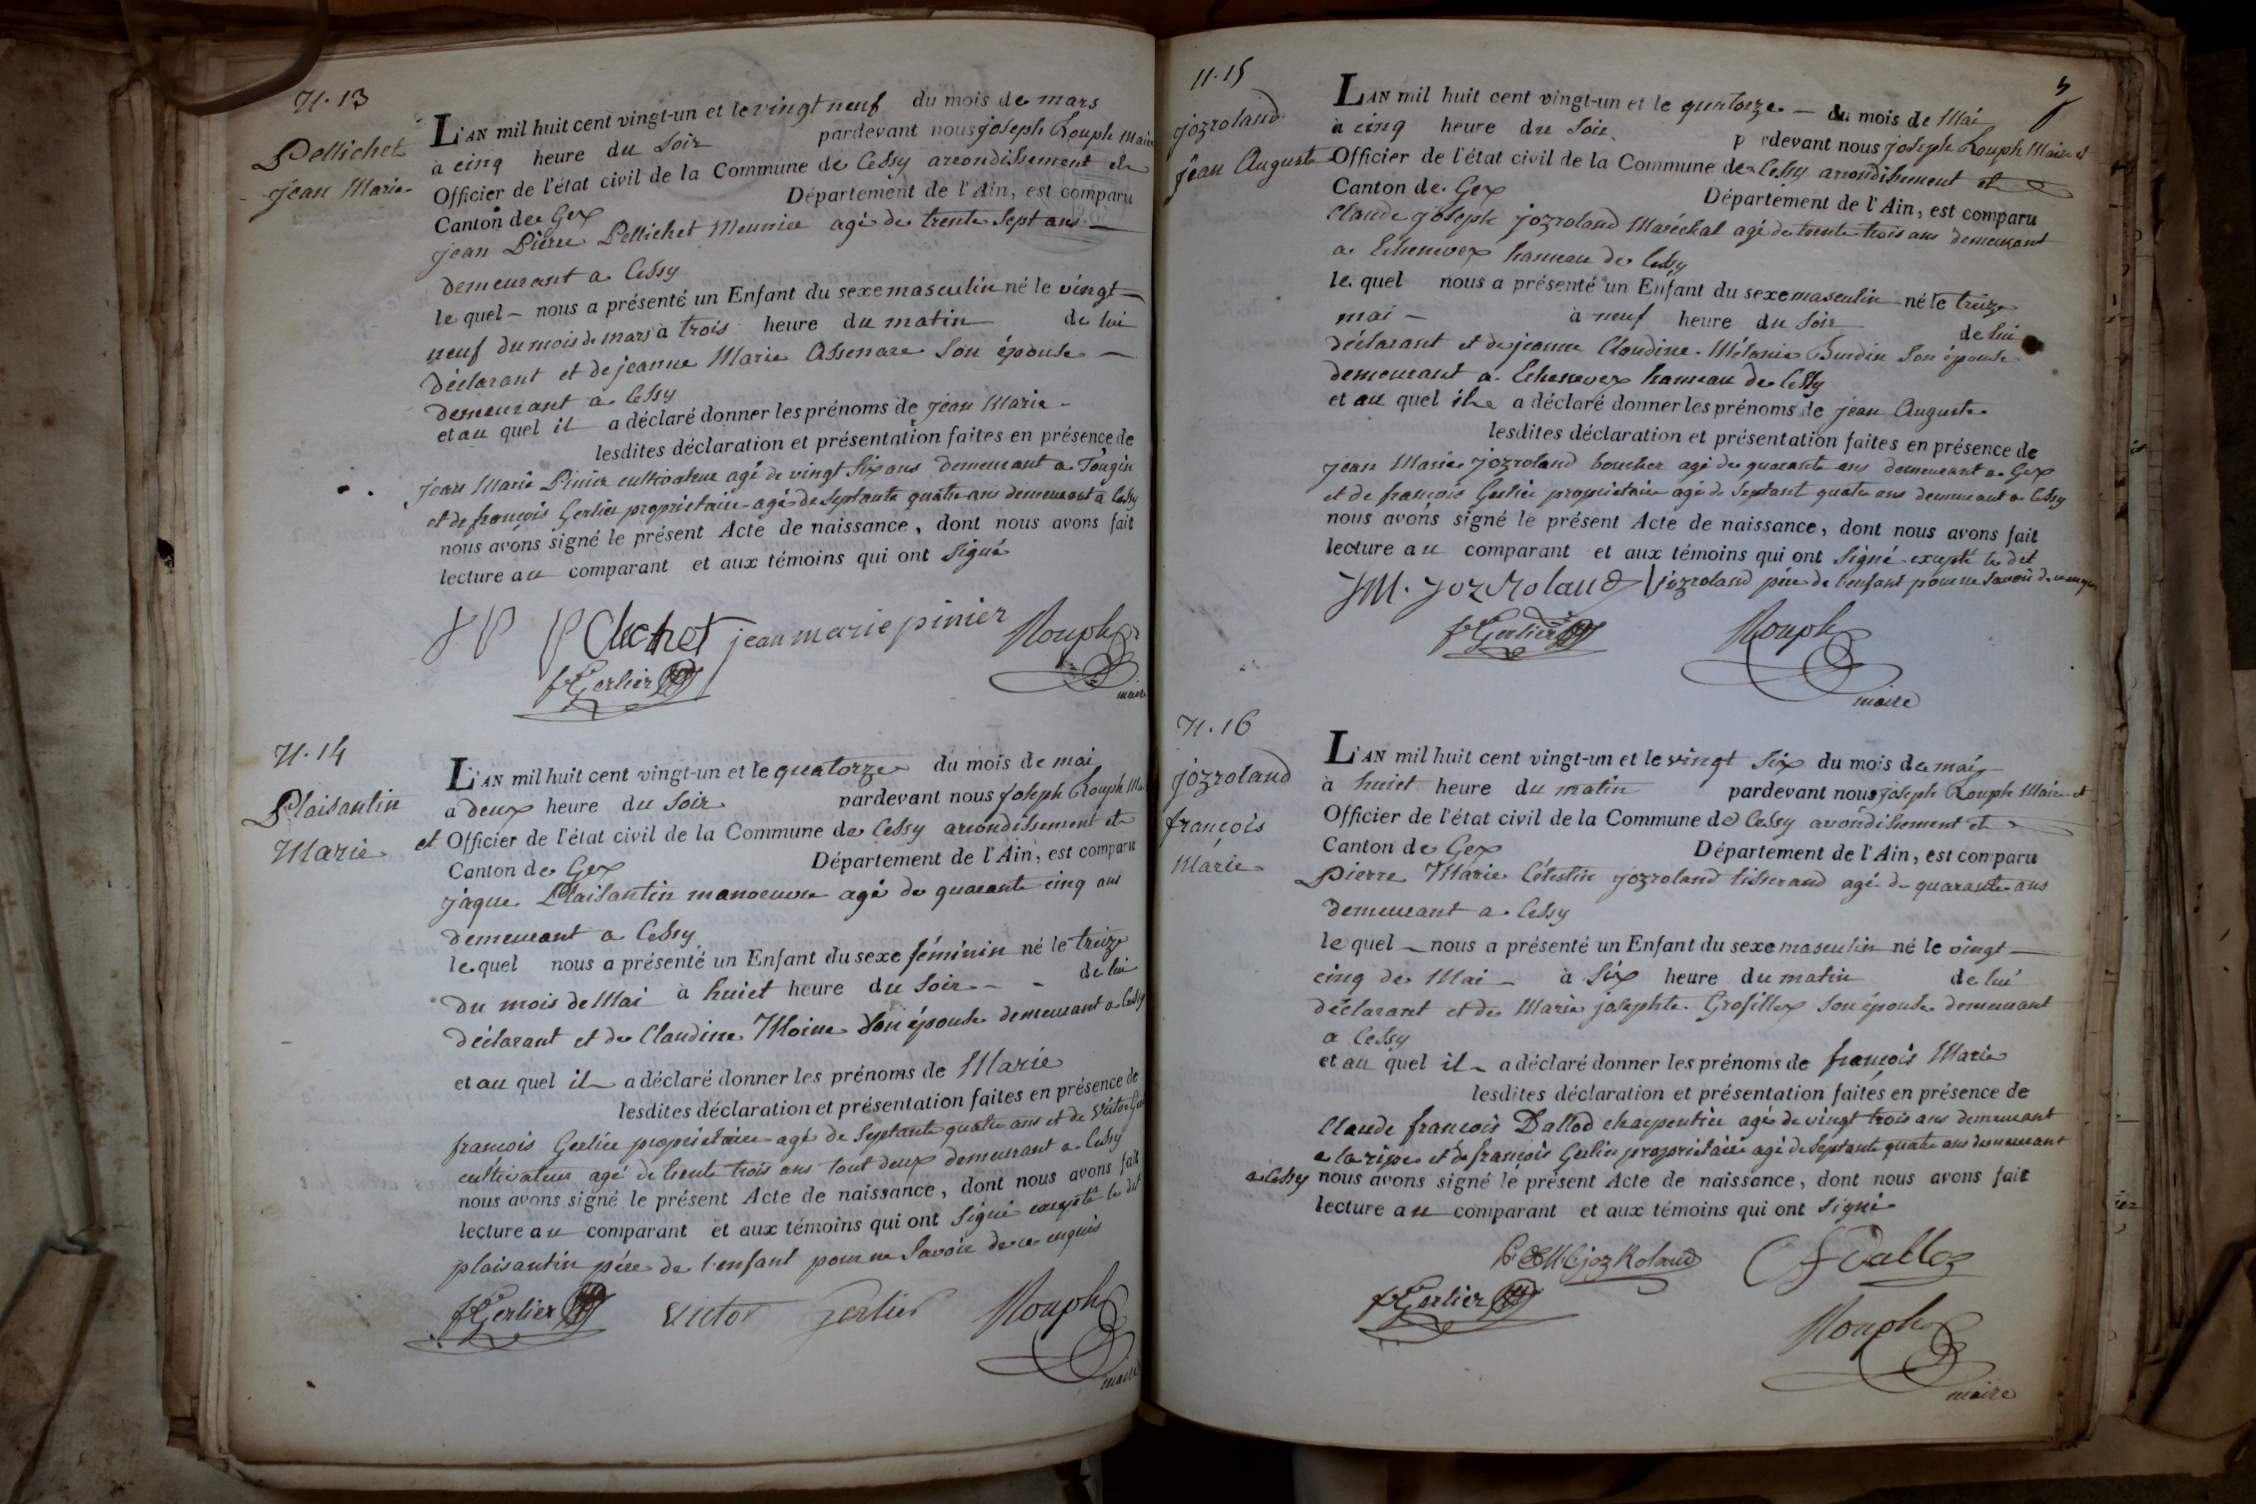 N. 13
Pellichet
jean Marie
L'AN mil huit cent vingt-un et le vingt neuf du mois de mars
à cinq heure du Soir pardevant nous joseph Rouph Maire
Officier de l'état civil de la Commune de Cessy arrondissement et
Canton de Gex Département de l'Ain, est comparu
jean Pierre Pellichet Meunier agé de trente Sept ans
demeurant a Cessy
le quel nous a présenté un Enfant du sexe masculin né le vingt
neuf du mois de mars à trois heure du matin de lui
déclarant et de jeanne Marie Assenare Son épouse
demeurant a Cessy
et au quel il a déclaré donner les prénoms de jean Marie
lesdites déclaration et présentation faites en présence de
jean Marie Pinier cultivateur agé de vingt Six ans demeurant a Tougin
et de françois Gerlier proprietaire agé de Septante quatre ans demeurant à Cessy
nous avons signé le présent Acte de naissance, dont nous avons fait
lecture au comparant et aux témoins qui ont Signé
JP Pelichet jean marie pinier Rouph
f Gerlier maire
N. 14
Plaisantin
Marie
L'AN mil huit cent vingt-un et le quatorze du mois de mai
a deux heure du Soir pardevant nous joseph Rouph Mai
et Officier de l'état civil de la Commune de Cessy arrondissement et
Canton de Gex Département de l'Ain, est comparu
jâque Plaisantin manoeuvre agé de quarante cinq ans
demeurant a Cessy
le quel nous a présenté un Enfant du sexe féminin né le treize
du mois de Mai à huiet heure du Soir de lui
déclarant et de Claudine Moine Son épouse demeurant a Cessy
et au quel il a déclaré donner les prénoms de Marie
lesdites déclaration et présentation faites en présence de
francois Gerlier proprietaire agé de Septante quatre ans et de Victor Ger
cultivateur agé de trente trois ans tout deux demeurant a Cessy
nous avons signé le présent Acte de naissance, dont nous avons fait
lecture au comparant et aux témoins qui ont Signé excepté le dit
plaisantin père de l'enfant pour ne Savoir de ce enquis
f Gerlier victor Gerlier Rouph
maire
N. 15
jozroland
jean Auguste
L'AN mil huit cent vingt-un et le quatorze du mois de Mai
à cinq heure du Soir p rdevant nous joseph Rouph Maire et
Officier de l'état civil de la Commune de Cessy arrondissement et
Canton de Gex Département de l'Ain, est comparu
Claude joseph jozroland Maréchal agé de trente trois ans demeurant
a Echenevex hameau de Cessy
le quel nous a présenté un Enfant du sexe masculin né le treize
mai à neuf heure du Soir de lui
déclarant et de jeanne Claudine Mélanie Burdin Son épouse
demeurant a Echenevex hameau de Cessy
et au quel il a déclaré donner les prénoms de jean Auguste
lesdites déclaration et présentation faites en présence de
jean Marie jozroland boucher agé de quarante ans demeurant a Gex
et de francois Gerlier proprietaire agé de Septant quatre ans demeurant a Cessy
nous avons signé le présent Acte de naissance, dont nous avons fait
lecture au comparant et aux témoins qui ont Signé excepté le dit
JM. JozRoland jozroland père de l'enfant pour ne Savoir de ce enquis
f Gerlier Rouph
maire
N. 16
jozroland
françois
Marie
L'AN mil huit cent vingt-un et le vingt Six du mois de mai
à huiet heure du matin pardevant nous joseph Rouph Maire et
Officier de l'état civil de la Commune de Cessy arrondissement et
Canton de Gex Département de l'Ain, est comparu
Pierre Marie Célestin jozroland tisserand agé de quarante ans
demeurant a Cessy
le quel nous a présenté un Enfant du sexe masculin né le vingt
cinq de Mai à Six heure du matin de lui
déclarant et de Marie josephte Grosillex Son épouse demeurant
a Cessy
et au quel il a déclaré donner les prénoms de françois Marie
lesdites déclaration et présentation faites en présence de
Claude francois Dallod charpentier agé de vingt trois ans demeurant
a la ripe et de francois Gerlier proprietaire agé de Septante quatre ans demeurant
a Cessy nous avons signé le présent Acte de naissance, dont nous avons fait
lecture au comparant et aux témoins qui ont Signé
jozRoland Dalloz
f Gerlier Rouph
maire